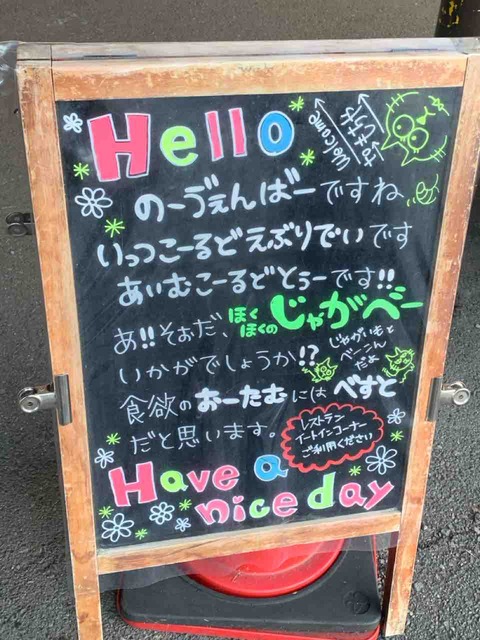 Hello
Welcome
のーゔぇんばーですね
いっつこーるどえぶりでいです
あいむこーるどとぅーです!!
あ!!そぉだ、ほくほくのじゃがべー
じゃがいもと
べーこん
だよ
いかがでしょうか!?
食欲のおーたむにはべすと
だと思います。
レストラン
イートインコーナー
ご利用ください
Have a
nice day